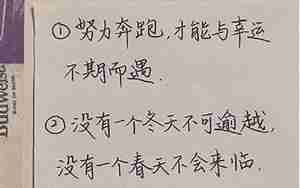 ① 努力奔跑,才能与幸运
不期而遇.
② 没有一个冬天不可逾越,
没有一个春天不会来临.
Budweiser